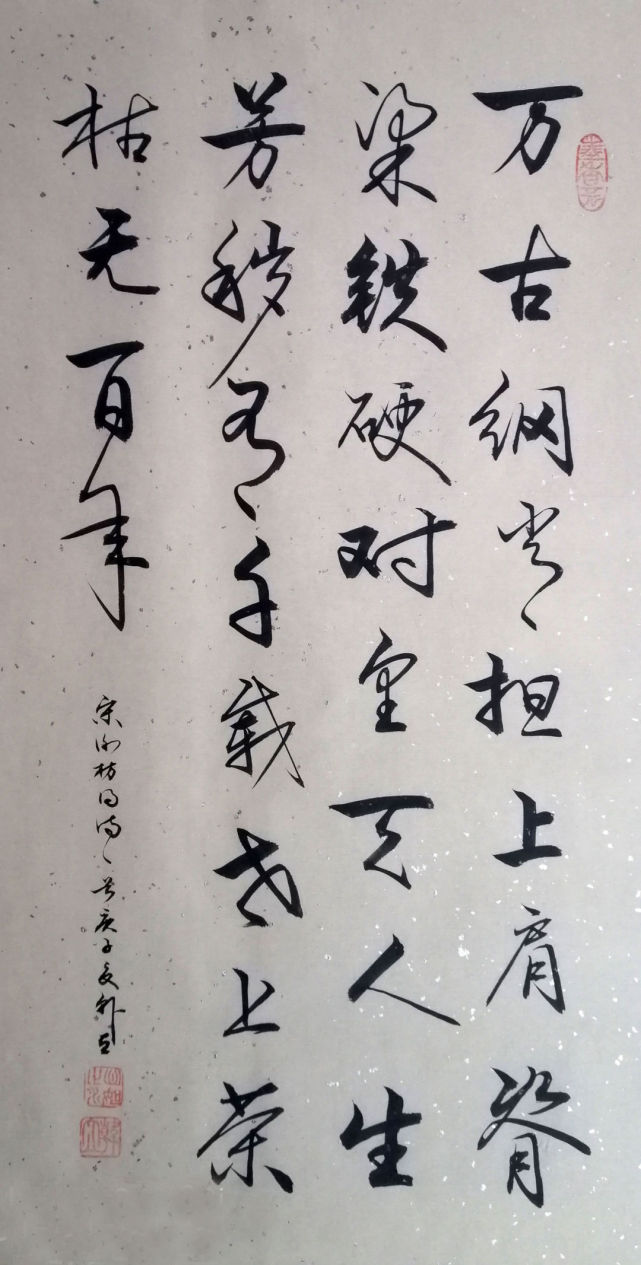 万古纲常担上肩脊
梁鉄硬对皇天人生
芳秽有千载世上荣
枯无百年
宋谢枋得诗 庚子夏